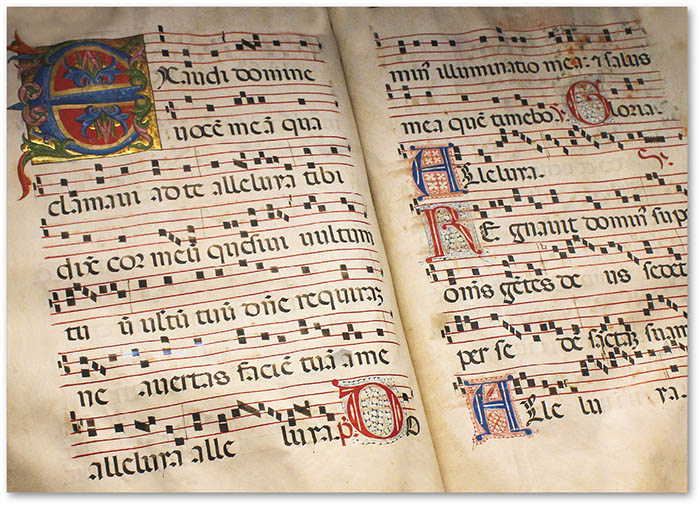 Exaudi domine
vocē meā qua
clamavi ad te alleluia tibi
dixit cor meū quesivi vultum
tu ū vultū tuū dn̄e requirā
ne avertas faciē tuā a me
alleluia alle luia. p D D
min' illuminatio mea. et salus
mea quē timebo. Gloria.
Alleluia.
Regnavit domin' sup
om̄s gētes deus sedet
per sedē sanctā suam
Alle lu ia